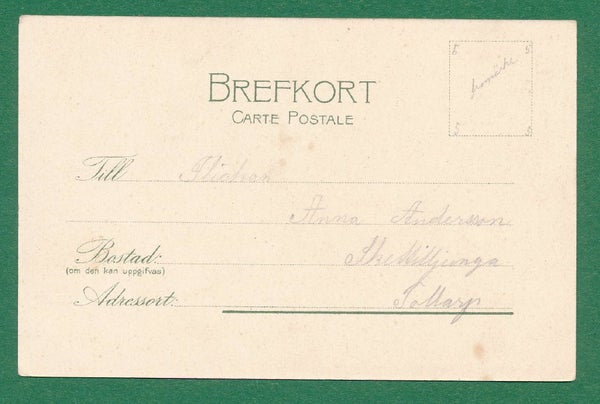 BREFKORT
CARTE POSTALE
5 5
frimärke
5 5
Till Flickan
Anna Andersson
Bostad: Skettiljunga
(om den kan uppgifvas)
Adressort: Tollarp